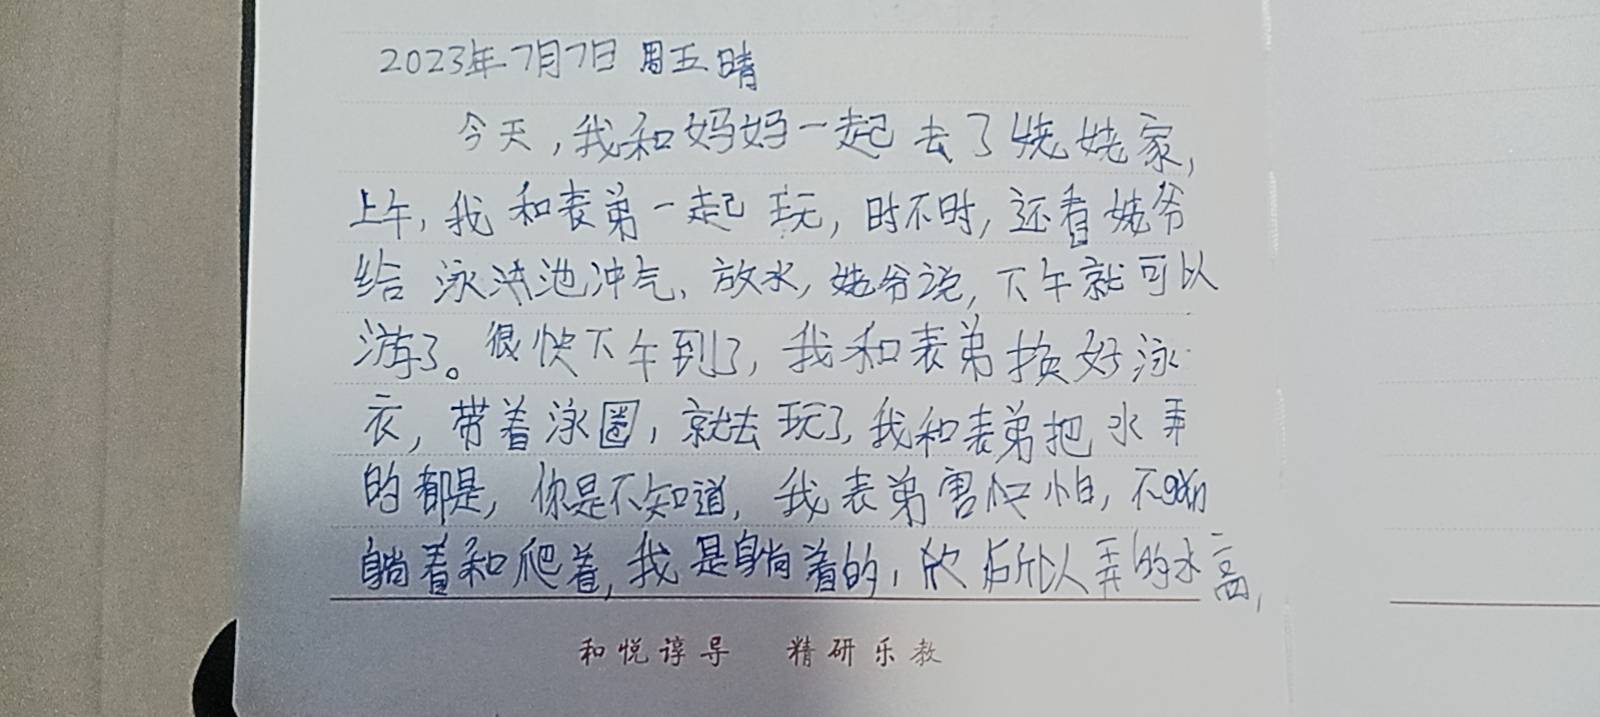 2023年7月7日 周五 晴
今天,我和妈妈一起去了姥姥家,
上午,我和表弟一起玩,时不时,还看姥爷
给泳池冲气、放水,姥爷说,下午就可以
游了。很快下午到了,我和表弟换好泳
衣,带着泳圈,就去玩了,我和表弟把水弄
的都是,你是不知道,我表弟害怕,不敢
躺着和爬着,我是躺着的,所以弄的水高,
和悦谆导 精研乐教